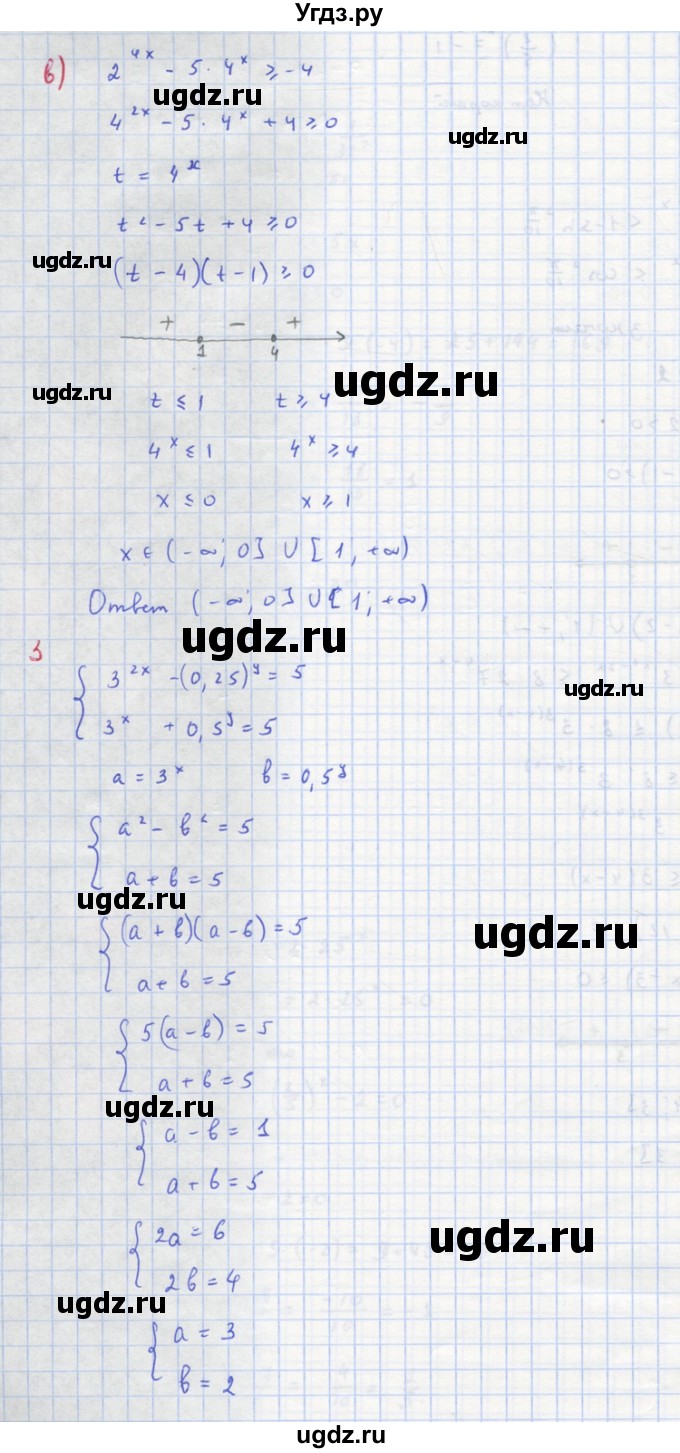 Угдз.ру
в) 2^{4x} - 5 · 4^x ≥ -4
ugdz.ru
4^{2x} - 5 · 4^x + 4 ≥ 0
ugdz.ru
t = 4^x
t² - 5t + 4 ≥ 0
ugdz.ru
(t - 4)(t - 1) ≥ 0
+ - +
1 4
ugdz.ru
ugdz.ru
t ≤ 1 t ≥ 4
4^x ≤ 1 4^x ≥ 4
x ≤ 0 x ≥ 1
x ∈ (-∞; 0] ∪ [1; +∞)
Ответ (-∞; 0] ∪ [1; +∞)
ugdz.ru
3
{ 3^{2x} - (0,25)^y = 5
ugdz.ru
3^x + 0,5^y = 5
a = 3^x b = 0,5^y
{ a² - b² = 5
a + b = 5
ugdz.ru
{ (a + b)(a - b) = 5
ugdz.ru
a + b = 5
{ 5(a - b) = 5
a + b = 5
ugdz.ru
{ a - b = 1
a + b = 5
{ 2a = 6
ugdz.ru
2b = 4
ugdz.ru
{ a = 3
b = 2
ugdz.ru